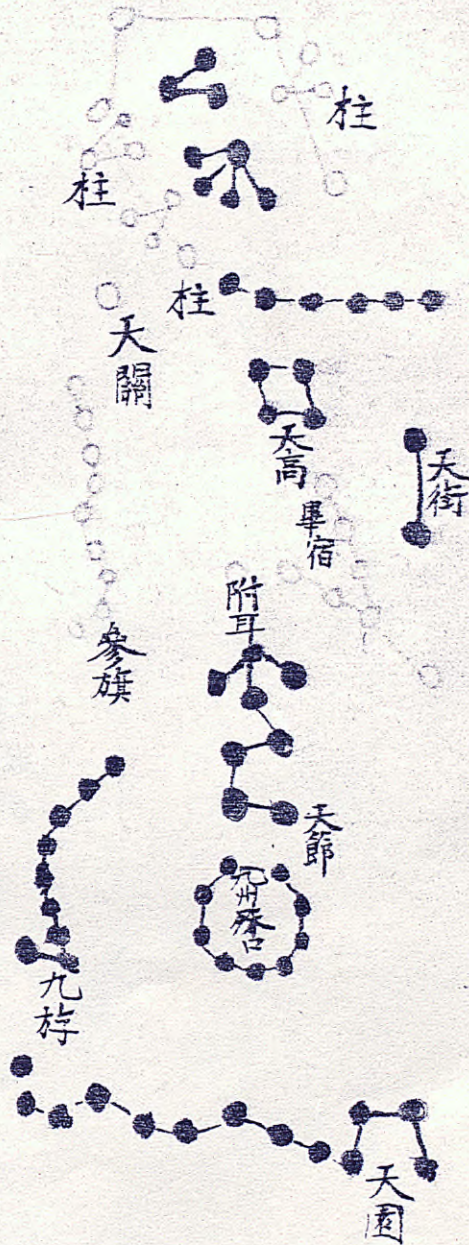 柱
柱
柱
天關
天高
天街
畢宿
附耳
參旗
天節
九州殊口
九斿
天園